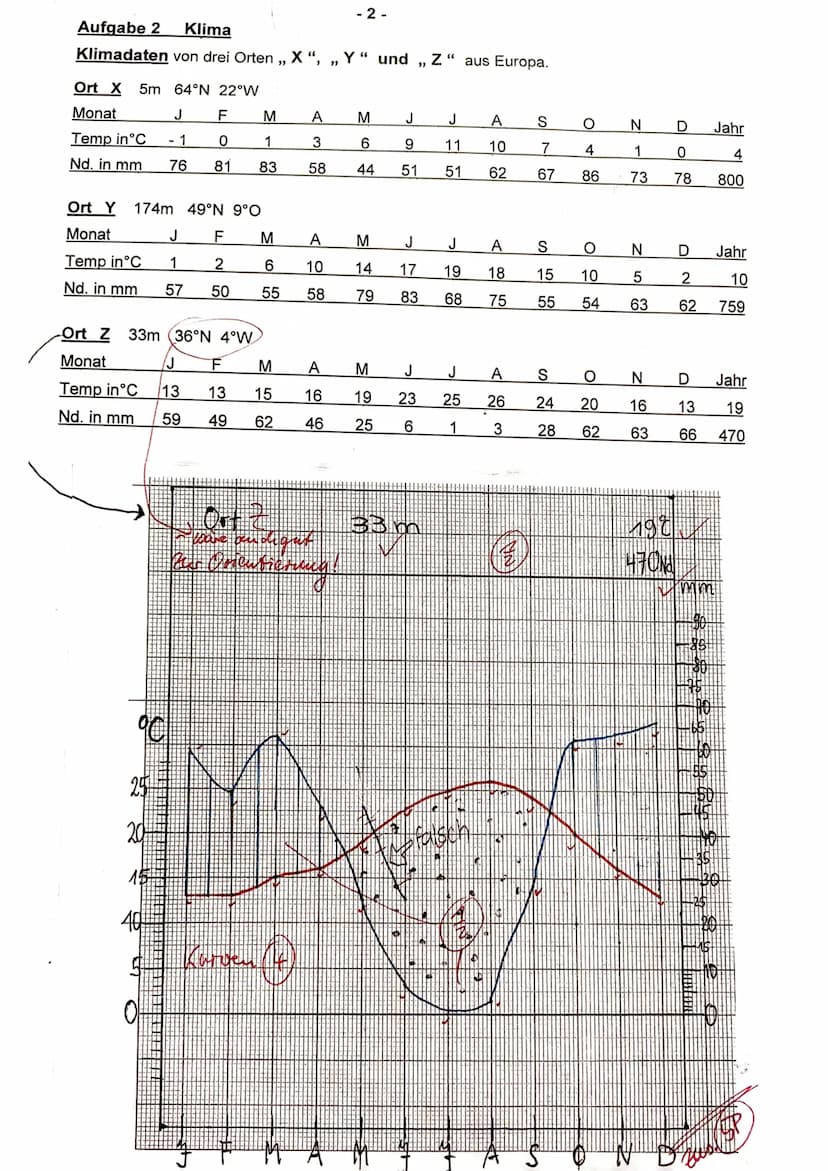 - 2 -
Aufgabe 2 Klima
Klimadaten von drei Orten „ X “, „ Y “ und „ Z “ aus Europa.
Ort X 5m 64°N 22°W
Monat J F M A M J J A S O N D Jahr
Temp in°C - 1 0 1 3 6 9 11 10 7 4 1 0 4
Nd. in mm 76 81 83 58 44 51 51 62 67 86 73 78 800
Ort Y 174m 49°N 9°O
Monat J F M A M J J A S O N D Jahr
Temp in°C 1 2 6 10 14 17 19 18 15 10 5 2 10
Nd. in mm 57 50 55 58 79 83 68 75 55 54 63 62 759
Ort Z 33m 36°N 4°W
Monat J F M A M J J A S O N D Jahr
Temp in°C 13 13 15 16 19 23 25 26 24 20 16 13 19
Nd. in mm 59 49 62 46 25 6 1 3 28 62 63 66 470
Ort Z 33 m 19°C
wäre auch gut 1/2 470 Nd
zur Orientierung!
mm
90
85
80
75
70
°C 65
60
55
25 50
45
20 falsch 40
35
15 30
25
10 1/2 20
15
5 Kurven 4 10
0 0
J F M A M J J A S O N D zus. 5P